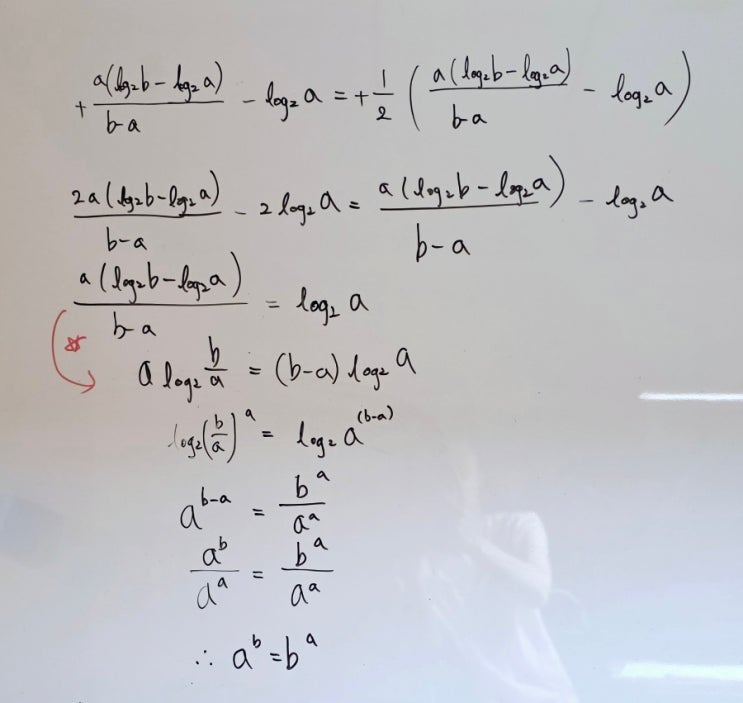 + a(log₂b - log₂a) / b-a - log₂a = + 1/2 ( a(log₂b - log₂a) / b-a - log₂a )
2a(log₂b - log₂a) / b-a - 2 log₂a = a(log₂b - log₂a) / b-a - log₂a
a(log₂b - log₂a) / b-a = log₂a
☆ a log₂ b/a = (b-a) log₂a
log₂(b/a)^a = log₂a^(b-a)
a^b-a = b^a / a^a
a^b / a^a = b^a / a^a
∴ a^b = b^a